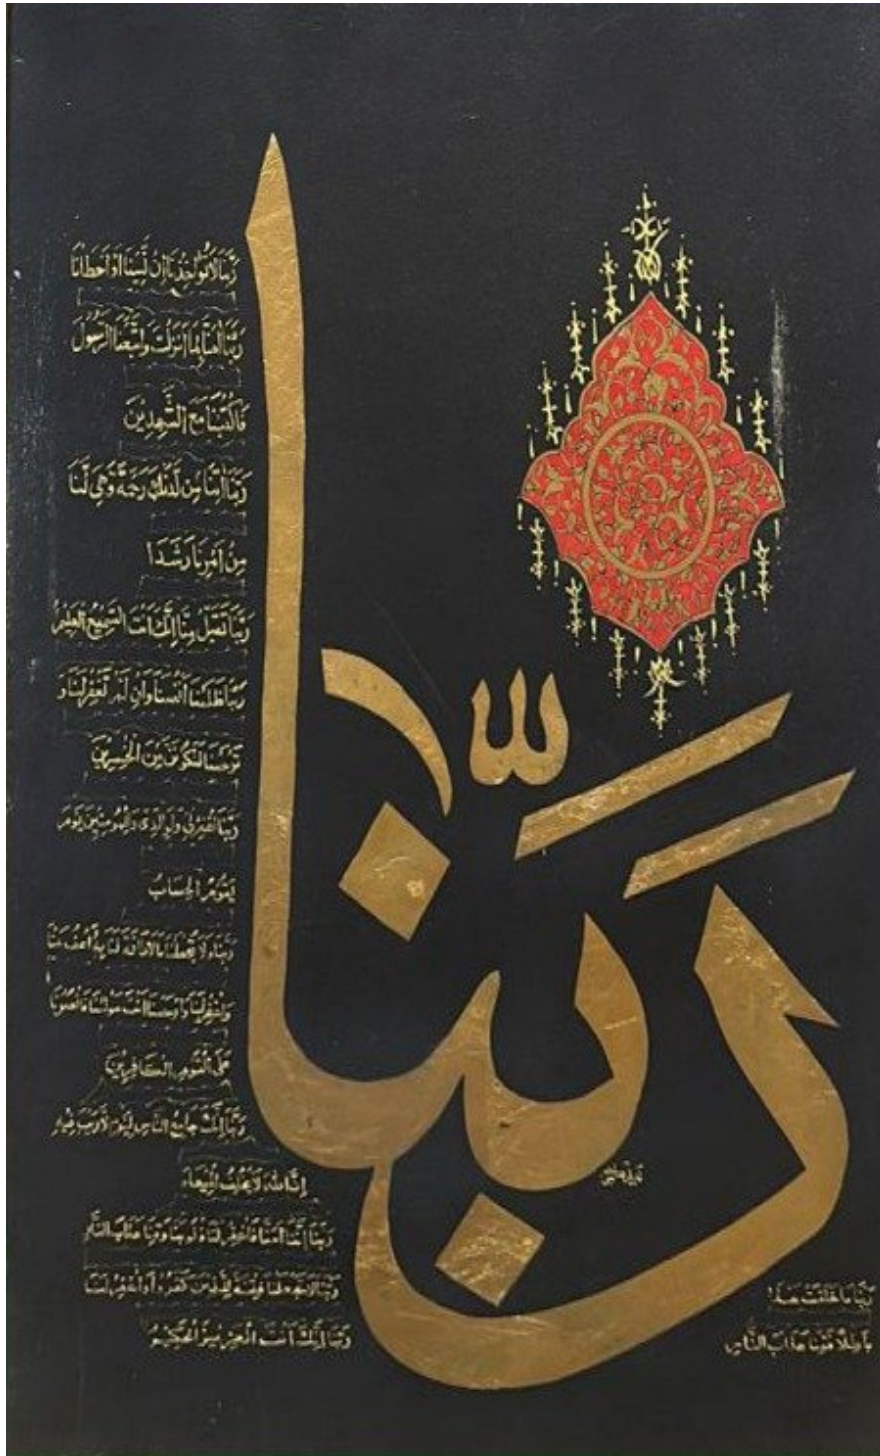 رَبَّنَا
رَبَّنَا لَا تُؤَاخِذْنَا إِنْ نَّسِينَا أَوْ أَخْطَأْنَا
رَبَّنَا آمَنَّا بِمَا أَنْزَلْتَ وَاتَّبَعْنَا الرَّسُولَ
فَاكْتُبْنَا مَعَ الشّٰهِدِيْنَ
رَبَّنَا اٰتِنَا مِن لَّدُنْكَ رَحْمَةً وَّهَيِّئْ لَنَا
مِنْ اَمْرِنَا رَشَدًا
رَبَّنَا تَقَبَّلْ مِنَّا إِنَّكَ أَنْتَ السَّمِيعُ الْعَلِيمُ
رَبَّنَا ظَلَمْنَا أَنْفُسَنَا وَإِنْ لَمْ تَغْفِرْ لَنَا وَ
تَرْحَمْنَا لَنَكُونَنَّ مِنَ الْخٰسِرِيْنَ
رَبَّنَا اغْفِرْ لِي وَلِوَالِدَيَّ وَلِلْمُؤْمِنِينَ يَوْمَ
يَقُوْمُ الْحِسَابُ
رَبَّنَا وَلَا تُحَمِّلْنَا مَا لَا طَاقَةَ لَنَا بِهِ وَاعْفُ عَنَّا
وَاغْفِرْ لَنَا وَارْحَمْنَا أَنْتَ مَوْلَانَا فَانْصُرْنَا
عَلَى الْقَوْمِ الْكَافِرِيْنَ
رَبَّنَا إِنَّكَ جَامِعُ النَّاسِ لِيَوْمٍ لَّا رَيْبَ فِيهِ
إِنَّ اللّٰهَ لَا يُخْلِفُ الْمِيعَادَ
رَبَّنَا إِنَّنَا آمَنَّا فَاغْفِرْ لَنَا ذُنُوبَنَا وَقِنَا عَذَابَ النَّارِ
رَبَّنَا لَا تَجْعَلْنَا فِتْنَةً لِّلَّذِينَ كَفَرُوا وَاغْفِرْ لَنَا
رَبَّنَا إِنَّكَ أَنْتَ الْعَزِيزُ الْحَكِيمُ
رَبَّنَا مَا خَلَقْتَ هٰذَا
بَاطِلًا عَذَابَ